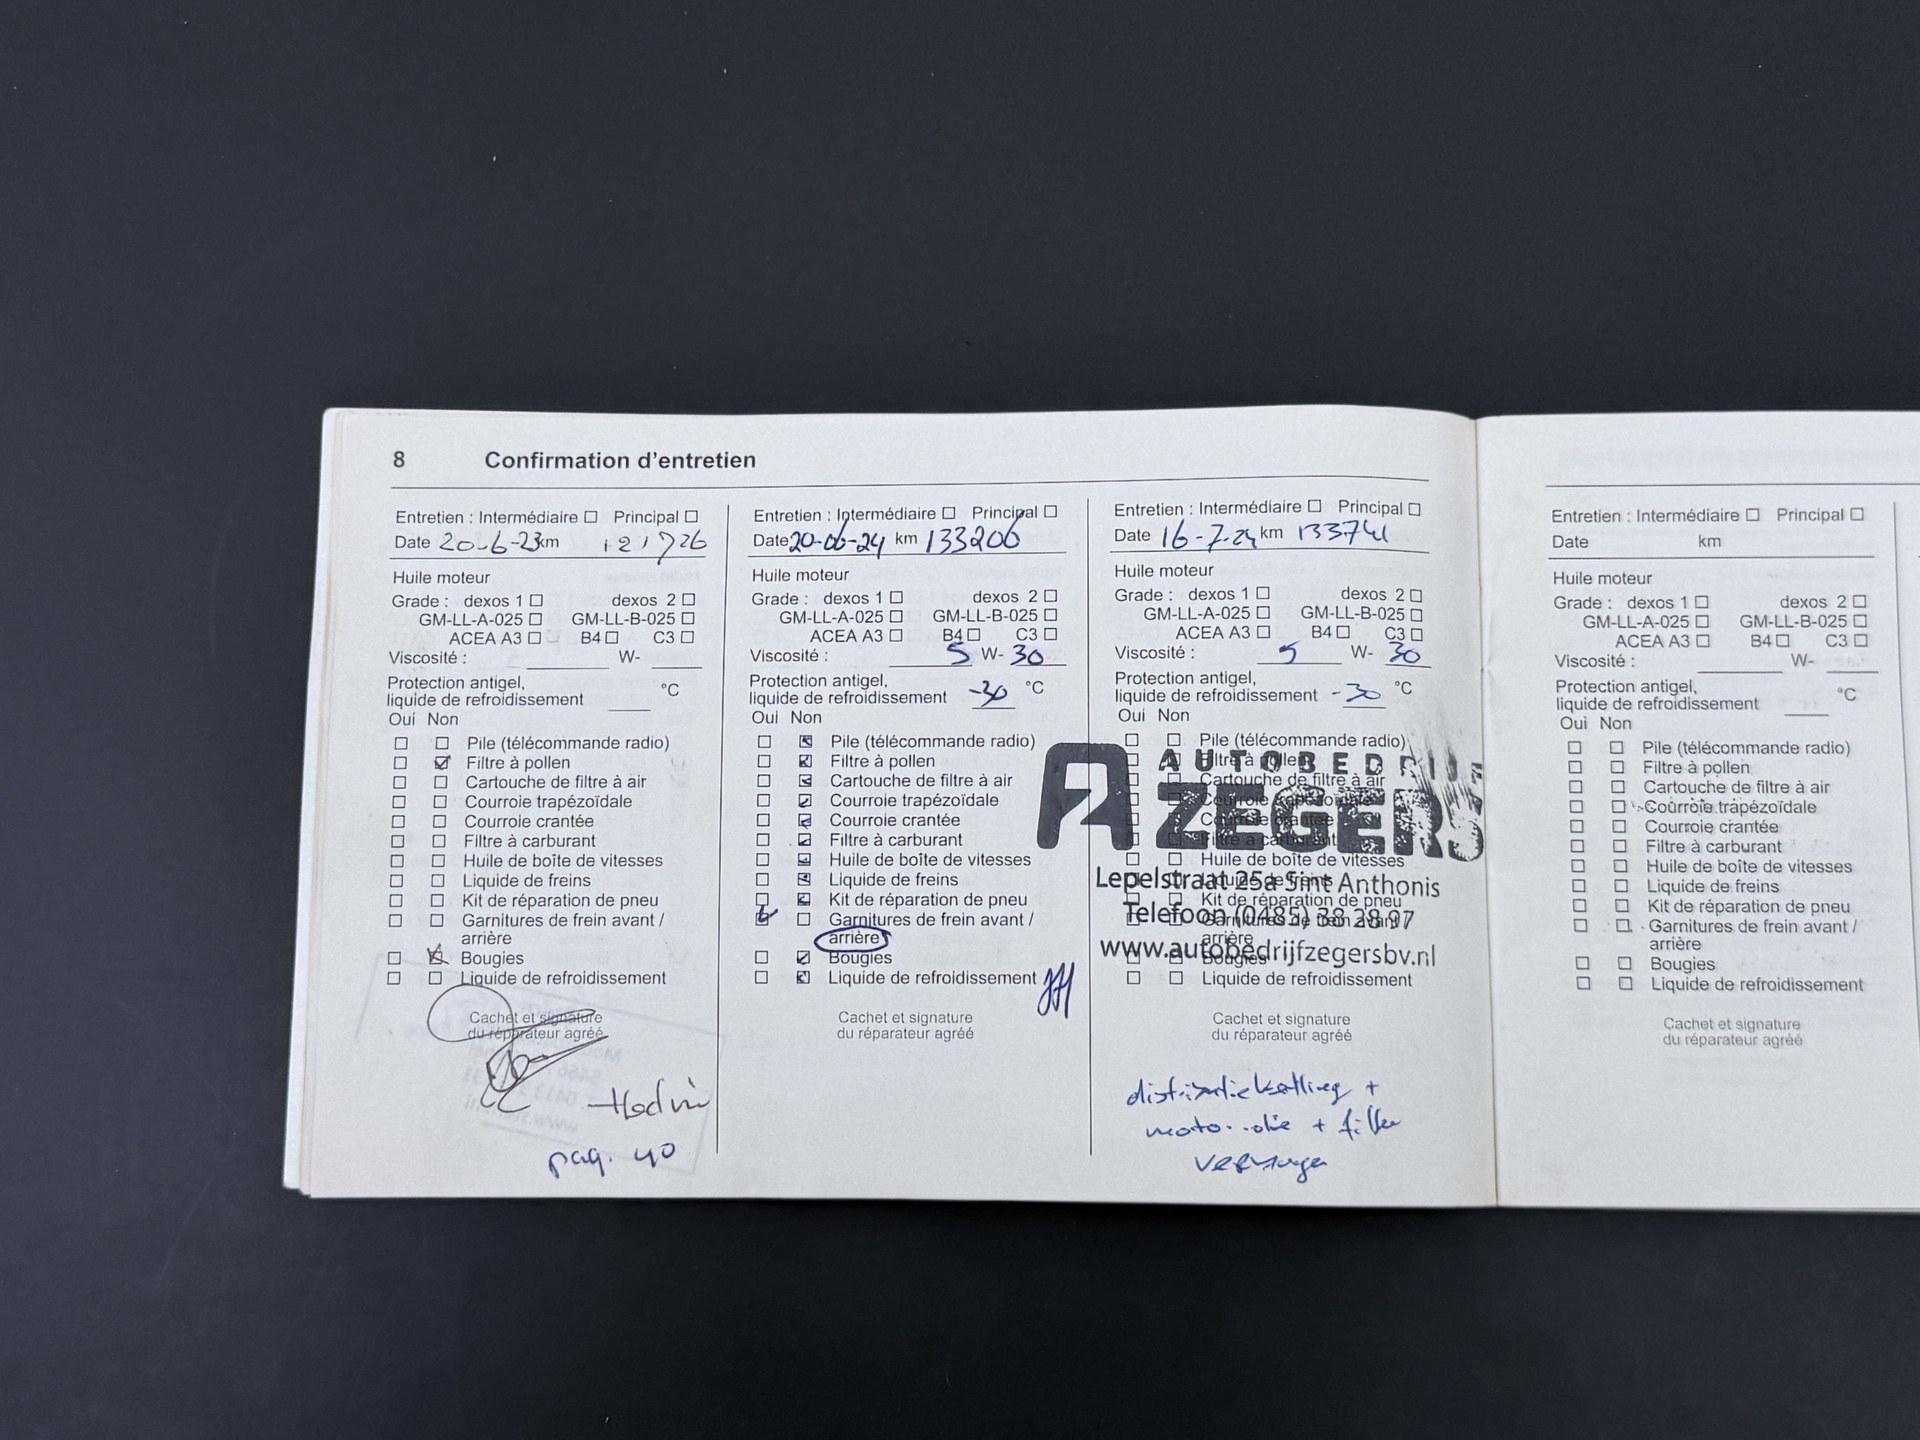 8 Confirmation d'entretien
Entretien : Intermédiaire ☐ Principal ☐
Date 20-6-23 km 121726
Huile moteur
Grade : dexos 1 ☐ dexos 2 ☐
GM-LL-A-025 ☐ GM-LL-B-025 ☐
ACEA A3 ☐ B4 ☐ C3 ☐
Viscosité : W-
Protection antigel,
liquide de refroidissement °C
Oui Non
Pile (télécommande radio)
Filtre à pollen
Cartouche de filtre à air
Courroie trapézoïdale
Courroie crantée
Filtre à carburant
Huile de boîte de vitesses
Liquide de freins
Kit de réparation de pneu
Garnitures de frein avant /
arrière
Bougies
Liquide de refroidissement
Cachet et signature
du réparateur agréé
pag. 40
Entretien : Intermédiaire ☐ Principal ☐
Date 20-06-24 km 133206
Huile moteur
Grade : dexos 1 ☐ dexos 2 ☐
GM-LL-A-025 ☐ GM-LL-B-025 ☐
ACEA A3 ☐ B4 ☐ C3 ☐
Viscosité : 5 W- 30
Protection antigel,
liquide de refroidissement -30 °C
Oui Non
Pile (télécommande radio)
Filtre à pollen
Cartouche de filtre à air
Courroie trapézoïdale
Courroie crantée
Filtre à carburant
Huile de boîte de vitesses
Liquide de freins
Kit de réparation de pneu
Garnitures de frein avant /
arrière
Bougies
Liquide de refroidissement
Cachet et signature
du réparateur agréé
Entretien : Intermédiaire ☐ Principal ☐
Date 16-7-24 km 133741
Huile moteur
Grade : dexos 1 ☐ dexos 2 ☐
GM-LL-A-025 ☐ GM-LL-B-025 ☐
ACEA A3 ☐ B4 ☐ C3 ☐
Viscosité : 5 W- 30
Protection antigel,
liquide de refroidissement -30 °C
Oui Non
Pile (télécommande radio)
Filtre à pollen
Cartouche de filtre à air
Courroie trapézoïdale
Courroie crantée
Filtre à carburant
Huile de boîte de vitesses
Liquide de freins
Kit de réparation de pneu
Garnitures de frein avant /
arrière
Bougies
Liquide de refroidissement
AUTOBEDRIJF
ZEGERS
Lepelstraat 25a Sint Anthonis
Telefoon (0485) 38 28 97
www.autobedrijfzegersbv.nl
Cachet et signature
du réparateur agréé
distributieketting +
motorolie + filter
vervangen
Entretien : Intermédiaire ☐ Principal ☐
Date km
Huile moteur
Grade : dexos 1 ☐ dexos 2 ☐
GM-LL-A-025 ☐ GM-LL-B-025 ☐
ACEA A3 ☐ B4 ☐ C3 ☐
Viscosité : W-
Protection antigel,
liquide de refroidissement °C
Oui Non
Pile (télécommande radio)
Filtre à pollen
Cartouche de filtre à air
Courroie trapézoïdale
Courroie crantée
Filtre à carburant
Huile de boîte de vitesses
Liquide de freins
Kit de réparation de pneu
Garnitures de frein avant /
arrière
Bougies
Liquide de refroidissement
Cachet et signature
du réparateur agréé